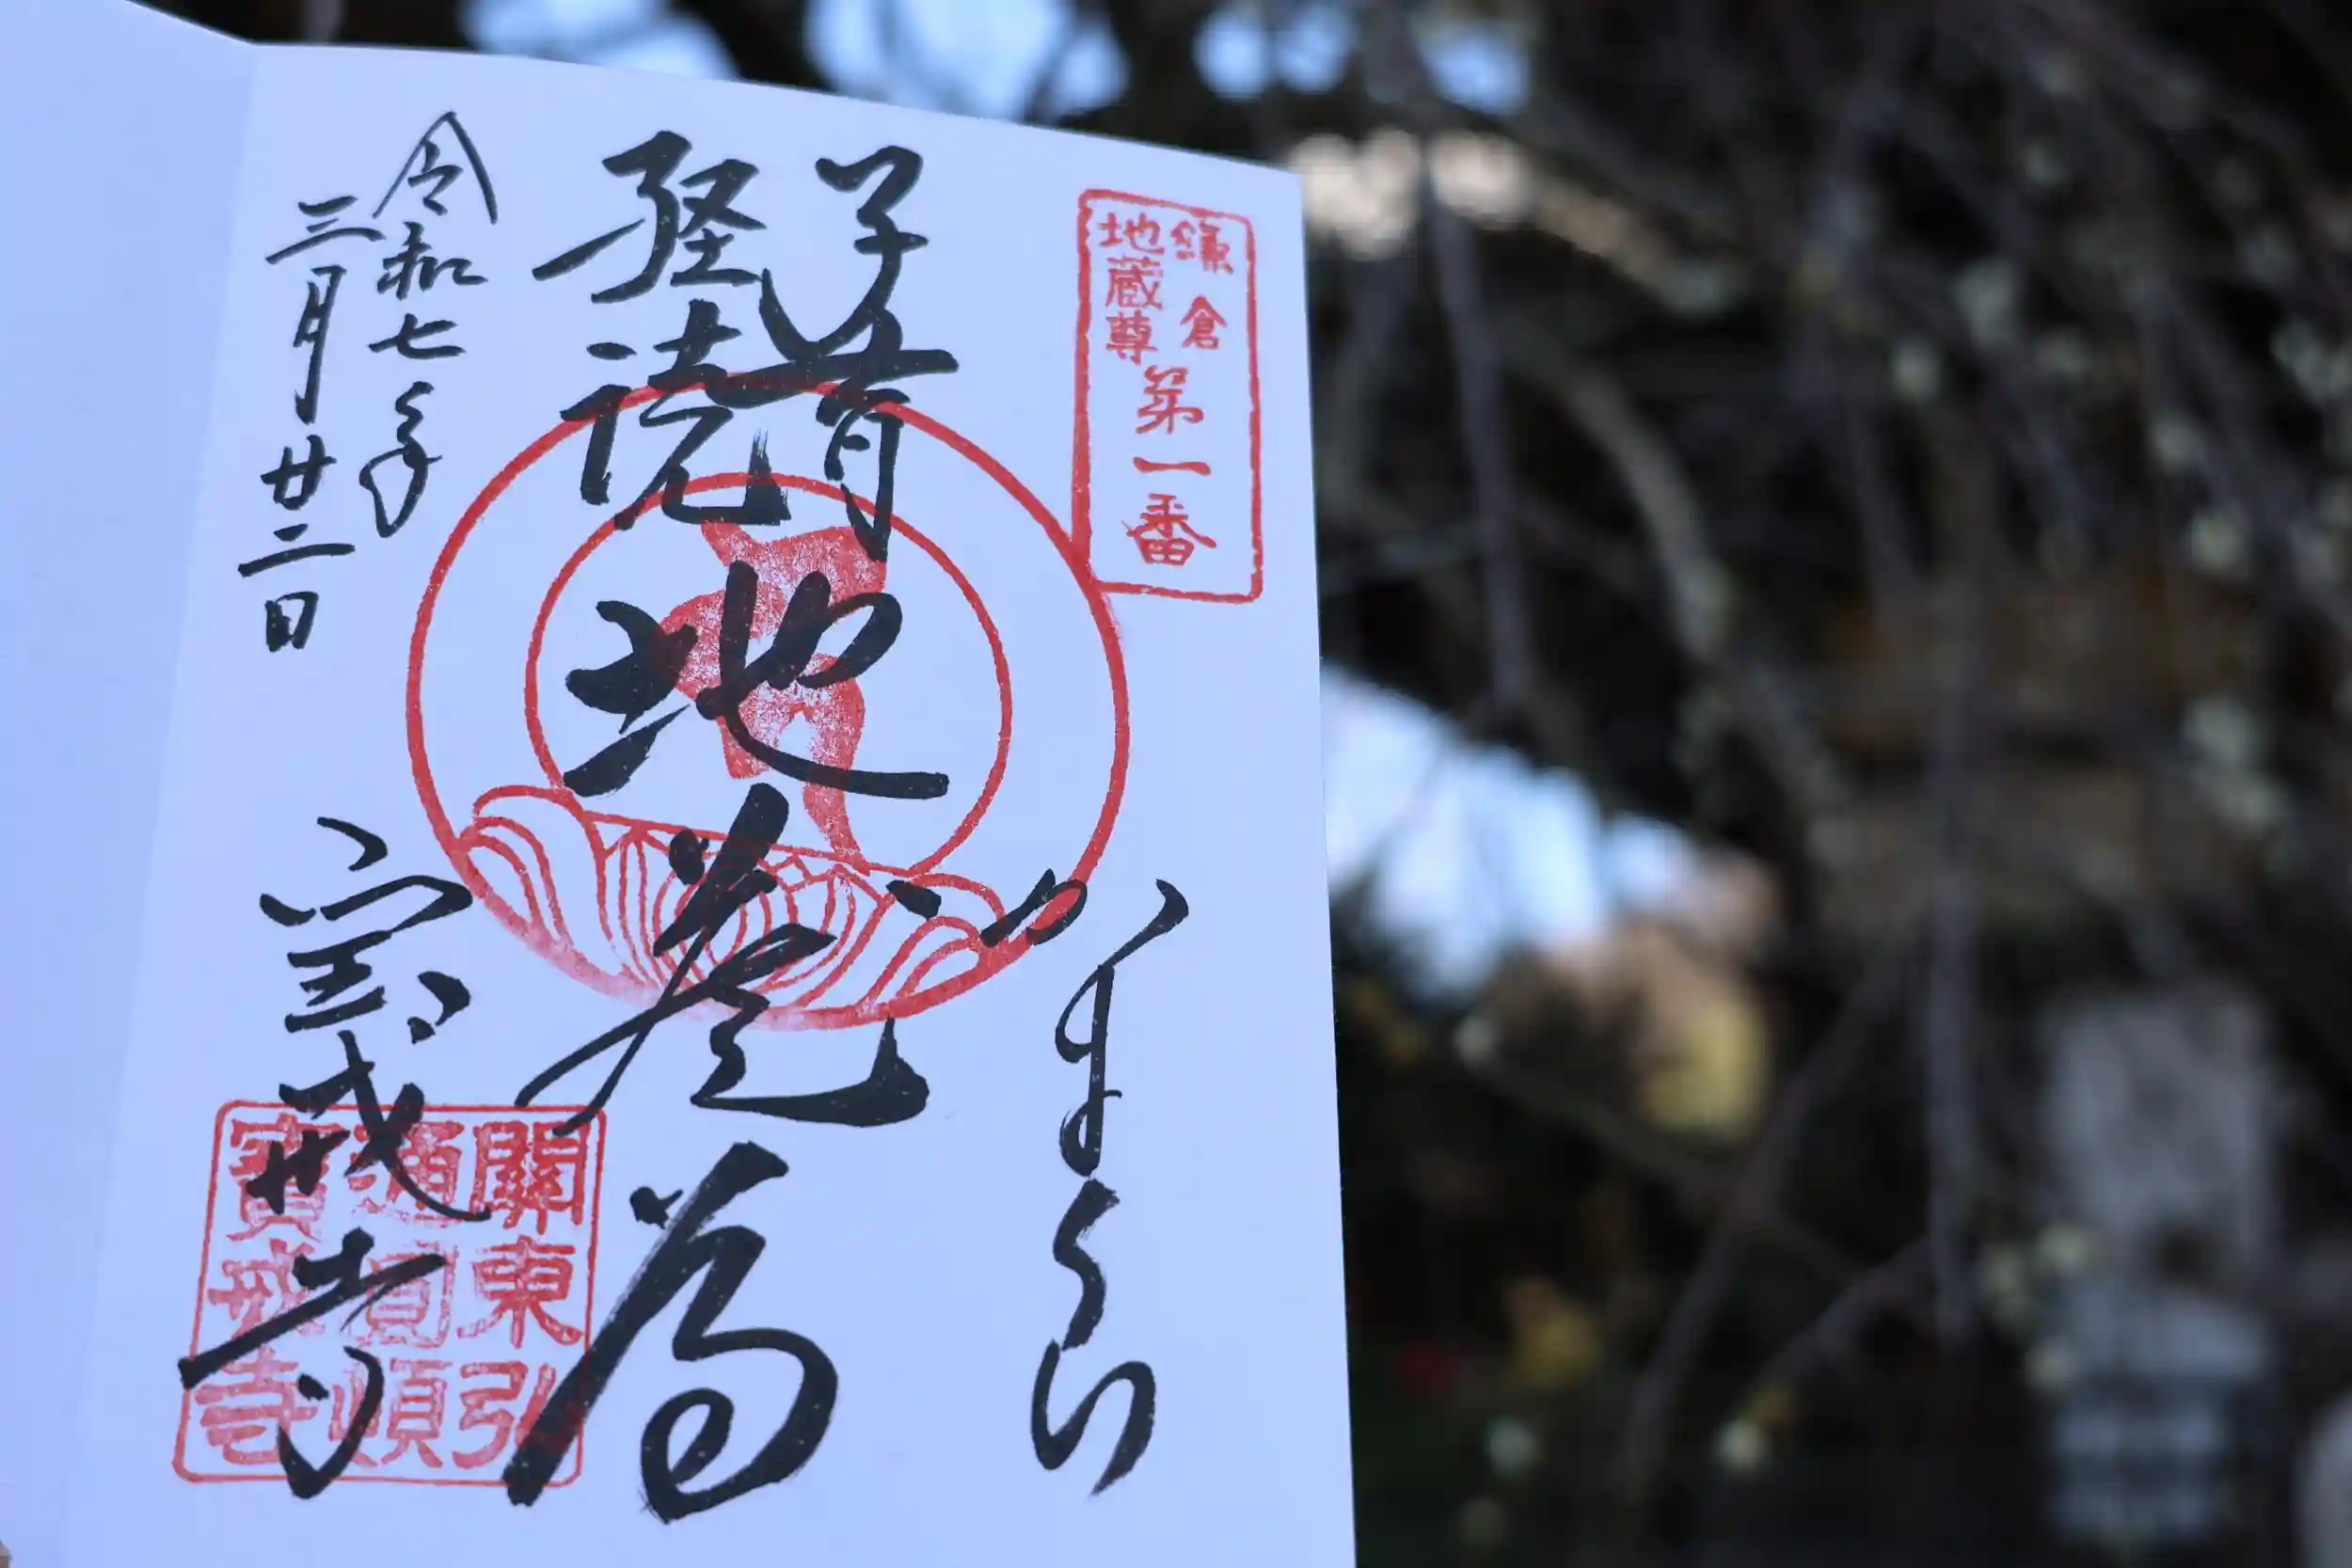 鎌倉
地蔵尊
第一番
かまくら
子育
経読
地蔵尊
令和七年
三月廿二日
宝戒寺
關東弘
通圓頓
寶戒寺